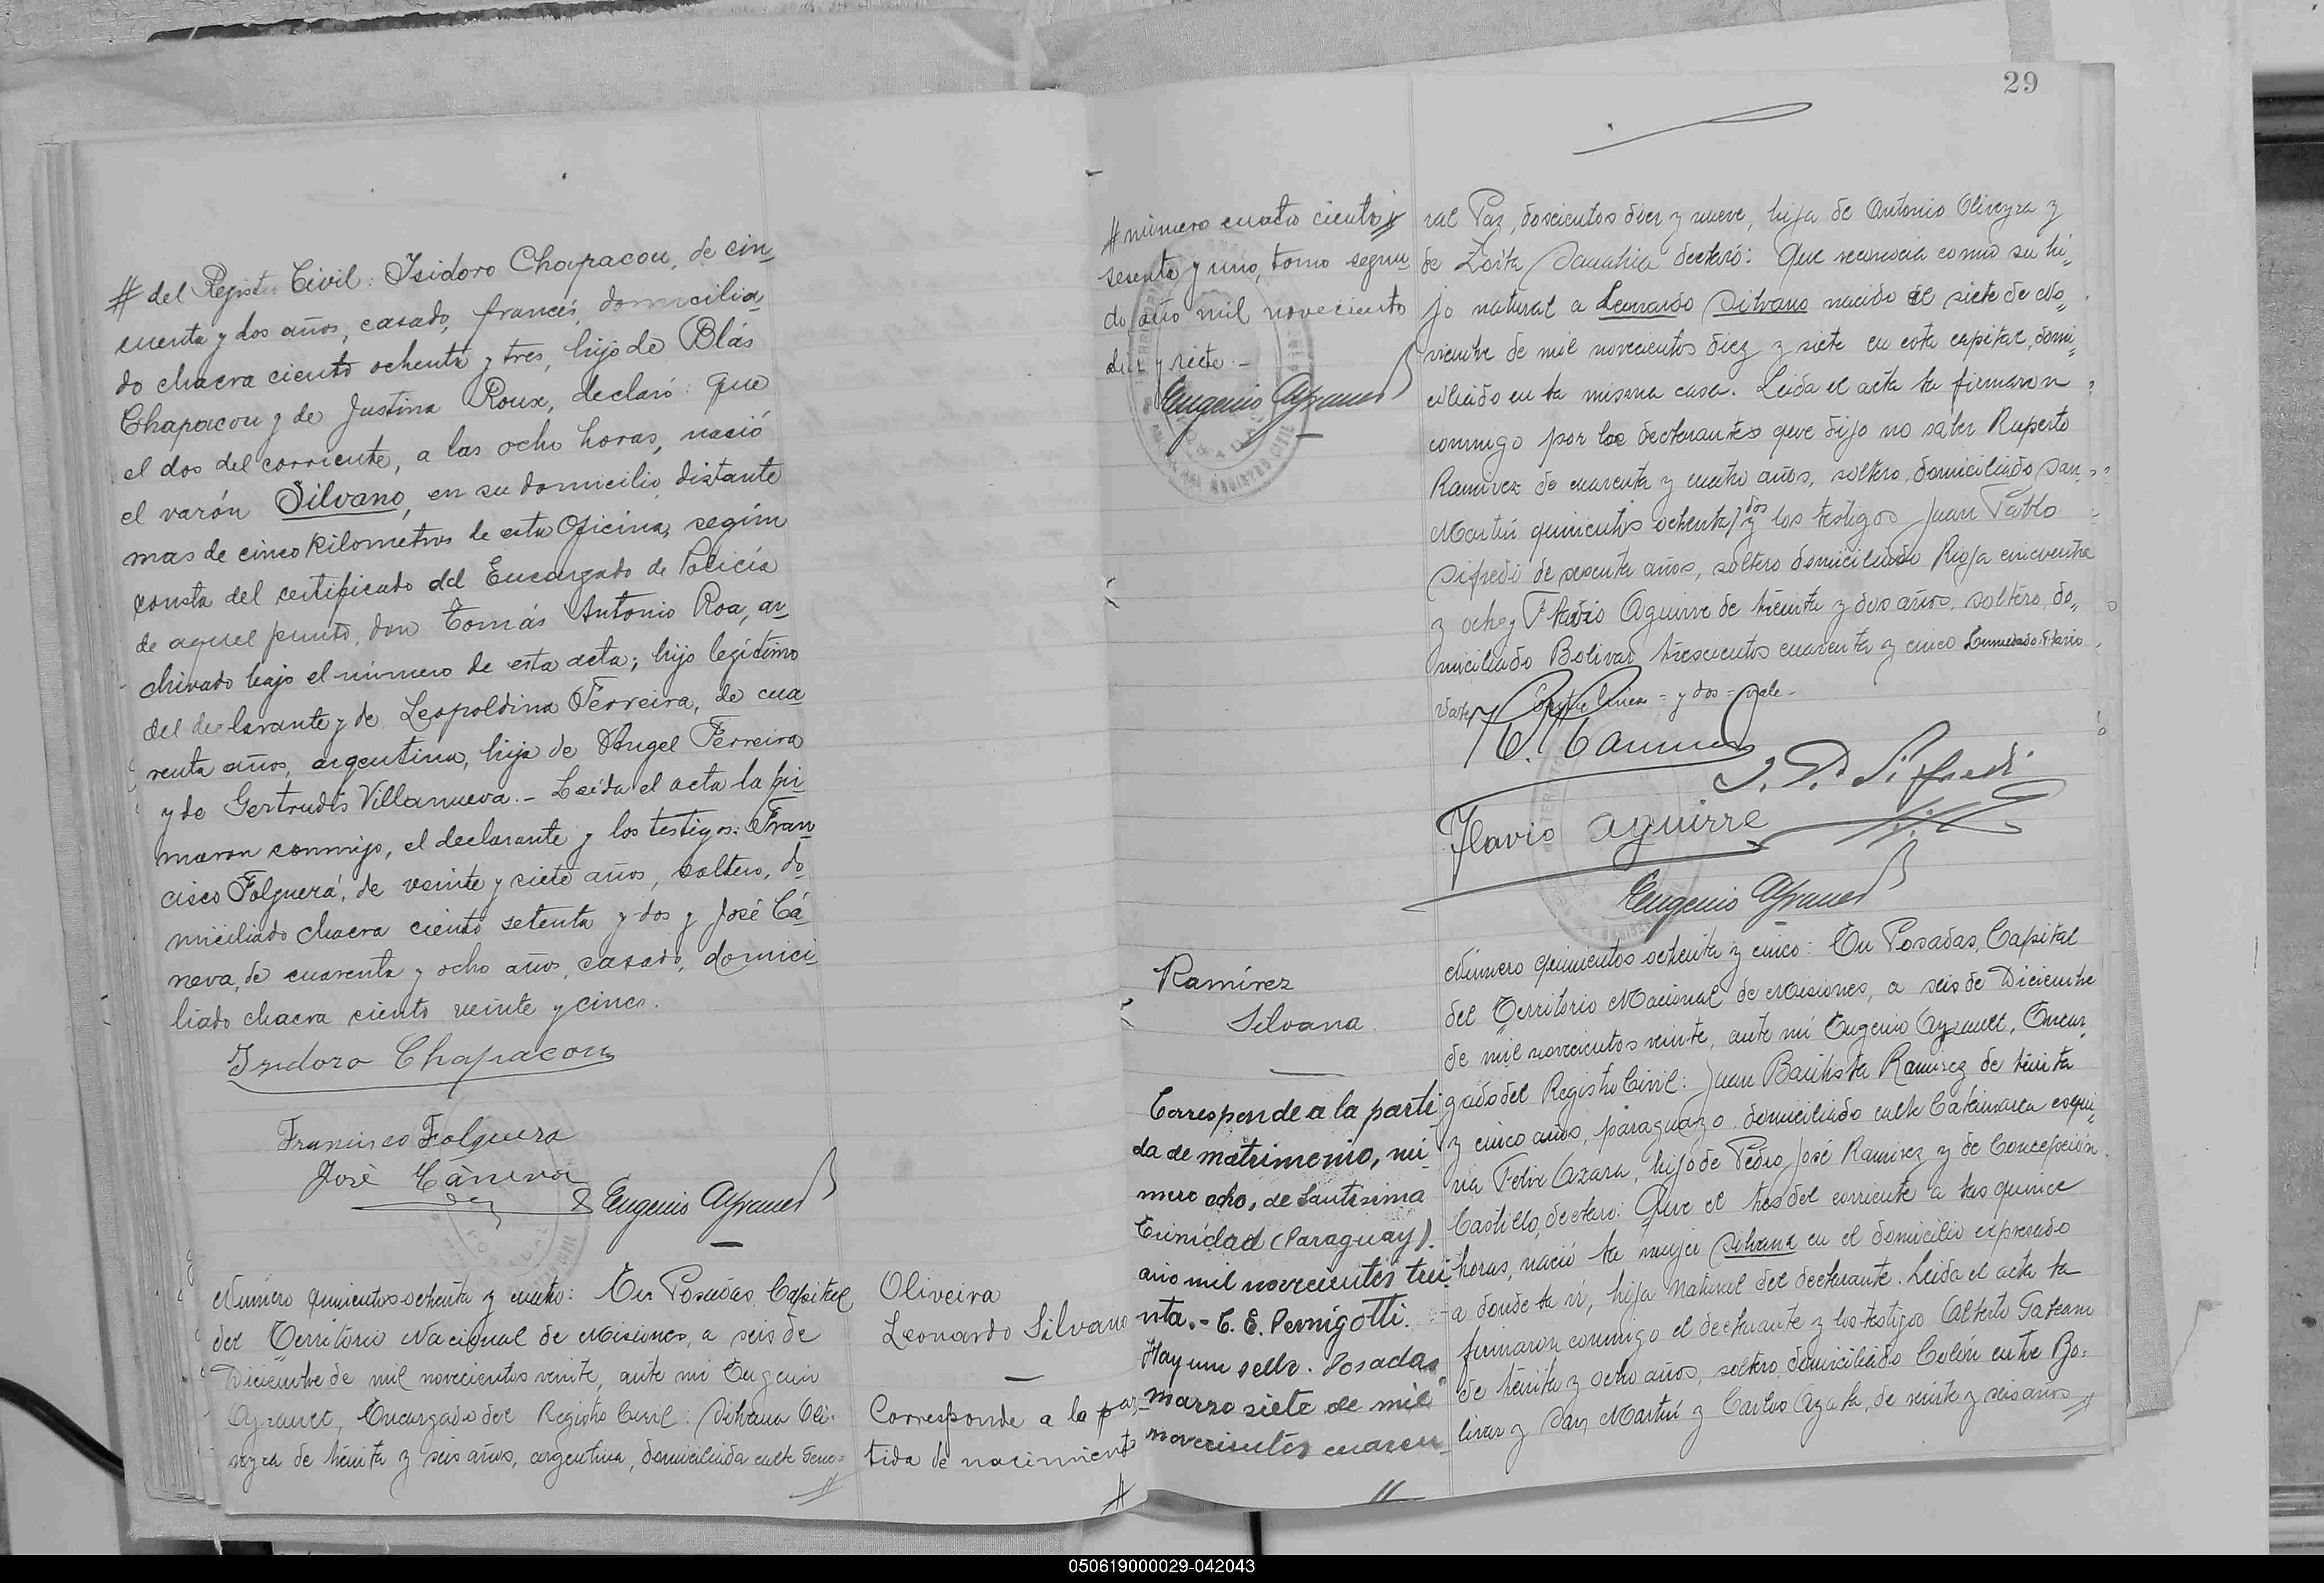 # del Registro Civil: Isidoro Chapacou, de cin_
cuenta y dos años, casado, francés, domicilia_
do chacra ciento ochenta y tres, hijo de Blás
Chapacou y de Justina Roux, declaró: que
el dos del corriente, a las ocho horas, nació
el varón Silvano, en su domicilio, distante
mas de cinco kilometros de esta Oficina, segúm
consta del certificado del Encargado de Policía
de aquel punto, don Tomás Antonio Roa, ar_
chivado bajo el número de esta acta; hijo legítimo
del declarante y de Leopoldina Ferreira, de cua
renta años, argentina, hija de Angel Ferreira
y de Gertrudis Villanueva.- Leída el acta la fir
maron conmigo, el declarante y los testigos: Fran_
cisco Folguerá, de veinte y siete años, soltero, do
miciliado chacra ciento setenta y dos y José Cá_
neva, de cuarenta y ocho años, casado, domici_
liado chacra ciento veinte y cinco.
Isidoro Chapacou
Francisco Folguera
José Cáneva
Eugenio
Número quinientos ochenta y cuatro: En Posadas, Capital
del Territorio Nacional de Misiones, a seis de
Diciembre de mil novecientos veinte, ante mi Eugenio
Encargado del Registro Civil: Silvana Oli-
veyra de treinta y seis años, argentina, domiciliada calle Gene=
Oliveira
Leonardo Silvano
Corresponde a la par_
tida de nacimiento
#
29
# número cuatro cientos
sesenta y uno, tomo segun_
do, año mil noveciento
diez y siete.-
Eugenio
ral Paz, doscientos diez y nueve, hija de Antonio Oliveyra y
de declaró: Que reconocia como su hi„
jo natural a Leonardo Silvano nacido el siete de No„
viembre de mil novecientos diez y siete en esta capital, domi„
ciliado en la misma casa. Leida el acta la firmaron
conmigo por los declarantes que dijo no saber Ruperto
Ramirez de cuarenta y cuatro años, soltero, domiciliado San
Martín quinientos ochenta y dos y los testigos Juan Pablo
Sifredi de sesenta años, soltero domiciliado Rioja cincuenta
y ocho y Flavio Aguirre de treinta y dos años, soltero, do„
miciliado Bolivar trescientos cuarenta y cinco Enmendado: Flavio
Vale. Entre lineas = y dos = vale -
J. P. Sifredi
Flavio Aguirre
Eugenio
Ramírez
Silvana
Corresponde a la parti
da de matrimonio, nú
mero ocho, de Santísima
Trinidad (Paraguay).
año mil novecientos trei
nta.- C. E. Pernigotti.
Hay un sello. Posadas
marzo siete de mil
novecientos cuaren_
Número quinientos ochenta y cinco: En Posadas, Capital
del Territorio Nacional de Misiones, a seis de Diciembre
de mil novecientos veinte, ante mí Eugenio Encar„
gado del Registro Civil: Juan Bautista Ramirez de treinta
y cinco años, paraguayo, domiciliado calle Catamarca esqui„
na Felix Azara, hijo de Pedro José Ramirez y de Concepción
Castillo, declaró: Que el tres del corriente a las quince
horas, nació la mujer Silvana en el domicilio expresado
a donde la ví, hija Natural del declarante. Leida el acta la
firmaron conmigo el declarante y los testigos Alberto
de treinta y ocho años, soltero, domiciliado Colón entre Bo-
livar y San Martín y Carlos Ayala, de veinte y seis años
050619000029-042043